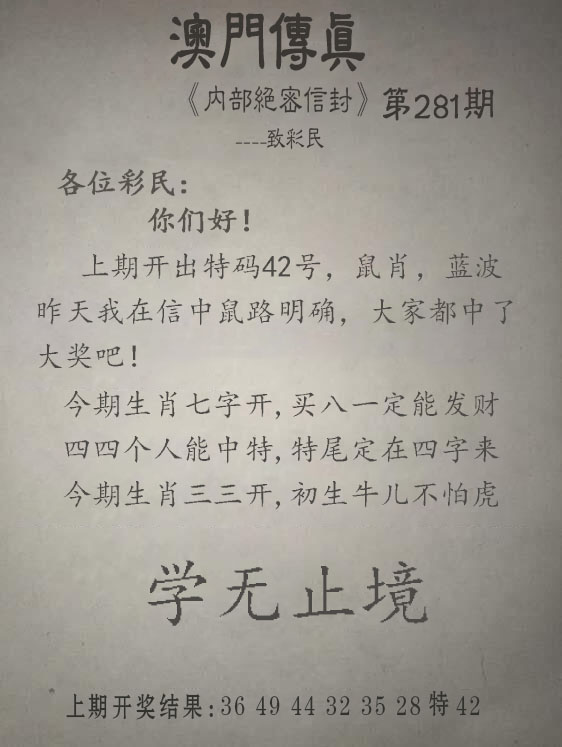 澳門傳眞
《内部絕密信封》第281期
----致彩民
各位彩民：
你们好！
上期开出特码42号，鼠肖，蓝波
昨天我在信中鼠路明确，大家都中了
大奖吧！
今期生肖七字开,买八一定能发财
四四个人能中特,特尾定在四字来
今期生肖三三开,初生牛儿不怕虎
学无止境
上期开奖结果:36 49 44 32 35 28 特 42